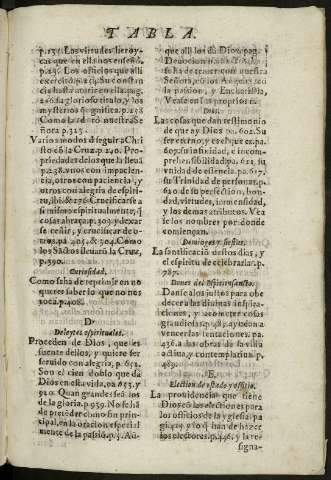 TABLA.
p.231. Los virtudes heroy-
cas que en ella nos enseñó.
p.236. Los officios que alli
exercitó.p.238. Su constan-
cia hasta morir en ella.pag.
246. La glorioso titulo, y los
mysterios significa.p.258
Como la adoró nuestra Se
ñora p.323.
Varios modos d̃ seguir a Chri
sto cõ la Cruz.p.240. Pro-
priedades de los que la lleuã
p.238. vnos con impacien-
cia, otros con paciencia, y
otros con alegria de espiri-
tu, ibi.& 276. Crucificarse a
si mismo espiritualmente, q̃
cosas abraça.p.300. y dexar
se ceñir, y crucificar de o-
tros.pa. 403.& 304. Como
los Sãctos lleuarõ la Cruz,
p.390.
Curiosidad.
Como se ha de reprimir en no
querer saber lo que no nos
toca.p.408.
D
Deleytes espirituales.
Proceden de Dios, que es
fuente dellos, y quiere ser
seruido con alegria, p.653.
Son el ciẽ doblo que dá
Dios en esta vida, pa. 653. y
910. Quan grandes serã los
de la gloria.p.939. No se há
de pretẽder como fin prin-
cipal, en la oracion especial
mente de la passiõ.p.3. Aũ-
que alli los dá Dios.pag.
Deuocion
se ha de tener con nuestra
Señora, cõ los Angeles
la passion, y Encharistia,
Vease en sus proprios
Dios.
Las cosas que dan testimonio
de que ay Dios pa. 602. Su
ser eterno, y excelque ex.pa.
605. su infinidad, e incom-
prehensibilidad.pa. 611. su
vnidad de essencia.pa.617.
su Trinidad de personas.p.
620. su de perfeccion, bon-
dad, virtudes, immensidad,
y los demas atributos. Vea
se los nombres por donde
comiençan.
Domingos, y fiestas.
La sanctificació destos dias, y
el espiritu de celebrarlas.p.
787.
Dones del Espiritusancto.
Danse a los justos para obe
decer a las diuinas inspira-
ciones, acometer cosas
grandiosas.p.478. ayudan a
vencer las tentaciones. pa.
436. a las obras de la vida
actiua, y contemplatiua.p.
489.
E
Election de estado y officio.
La prouidencia que tiene
Dios cõ las elecciones para
los officios de la yglesia.pa
204.429. y lo q̃ han de hazer
los electores.p.446. y la re
signa-